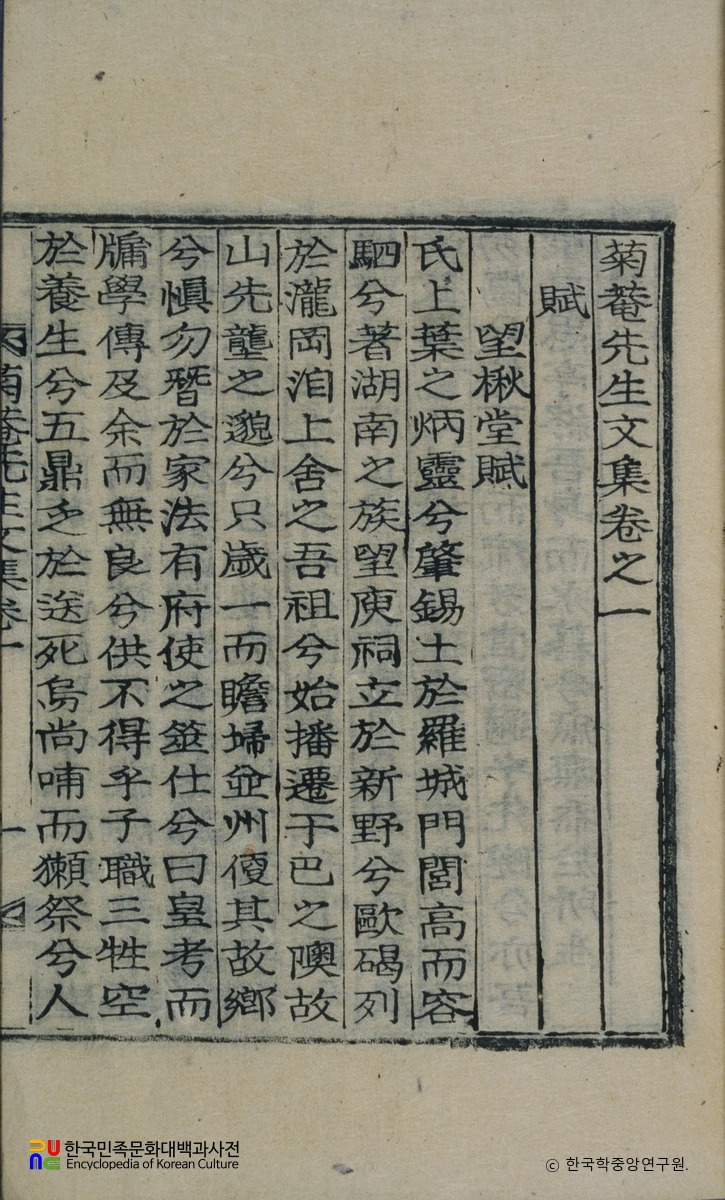 菊菴先生文集卷之一
賦
望楸堂賦
氏上葉之炳靈兮肇錫土於羅城門閭高而容
駟兮著湖南之族望庾祠立於新野兮歐碣列
於瀧岡洎上舍之吾祖兮始播遷于巴之隩故
山先壟之邈兮只歲一而瞻埽並州便其故鄉
兮惧勿替於家法有府使之筮仕兮曰皇考而
牖學傳及余而無良兮供不得乎子職三牲空
於養生兮五鼎乏於送死烏尚哺而獺祭兮人
菊菴先生文集卷一
一
한국민족문화대백과사전
Encyclopedia of Korean Culture
ⓒ 한국학중앙연구원.